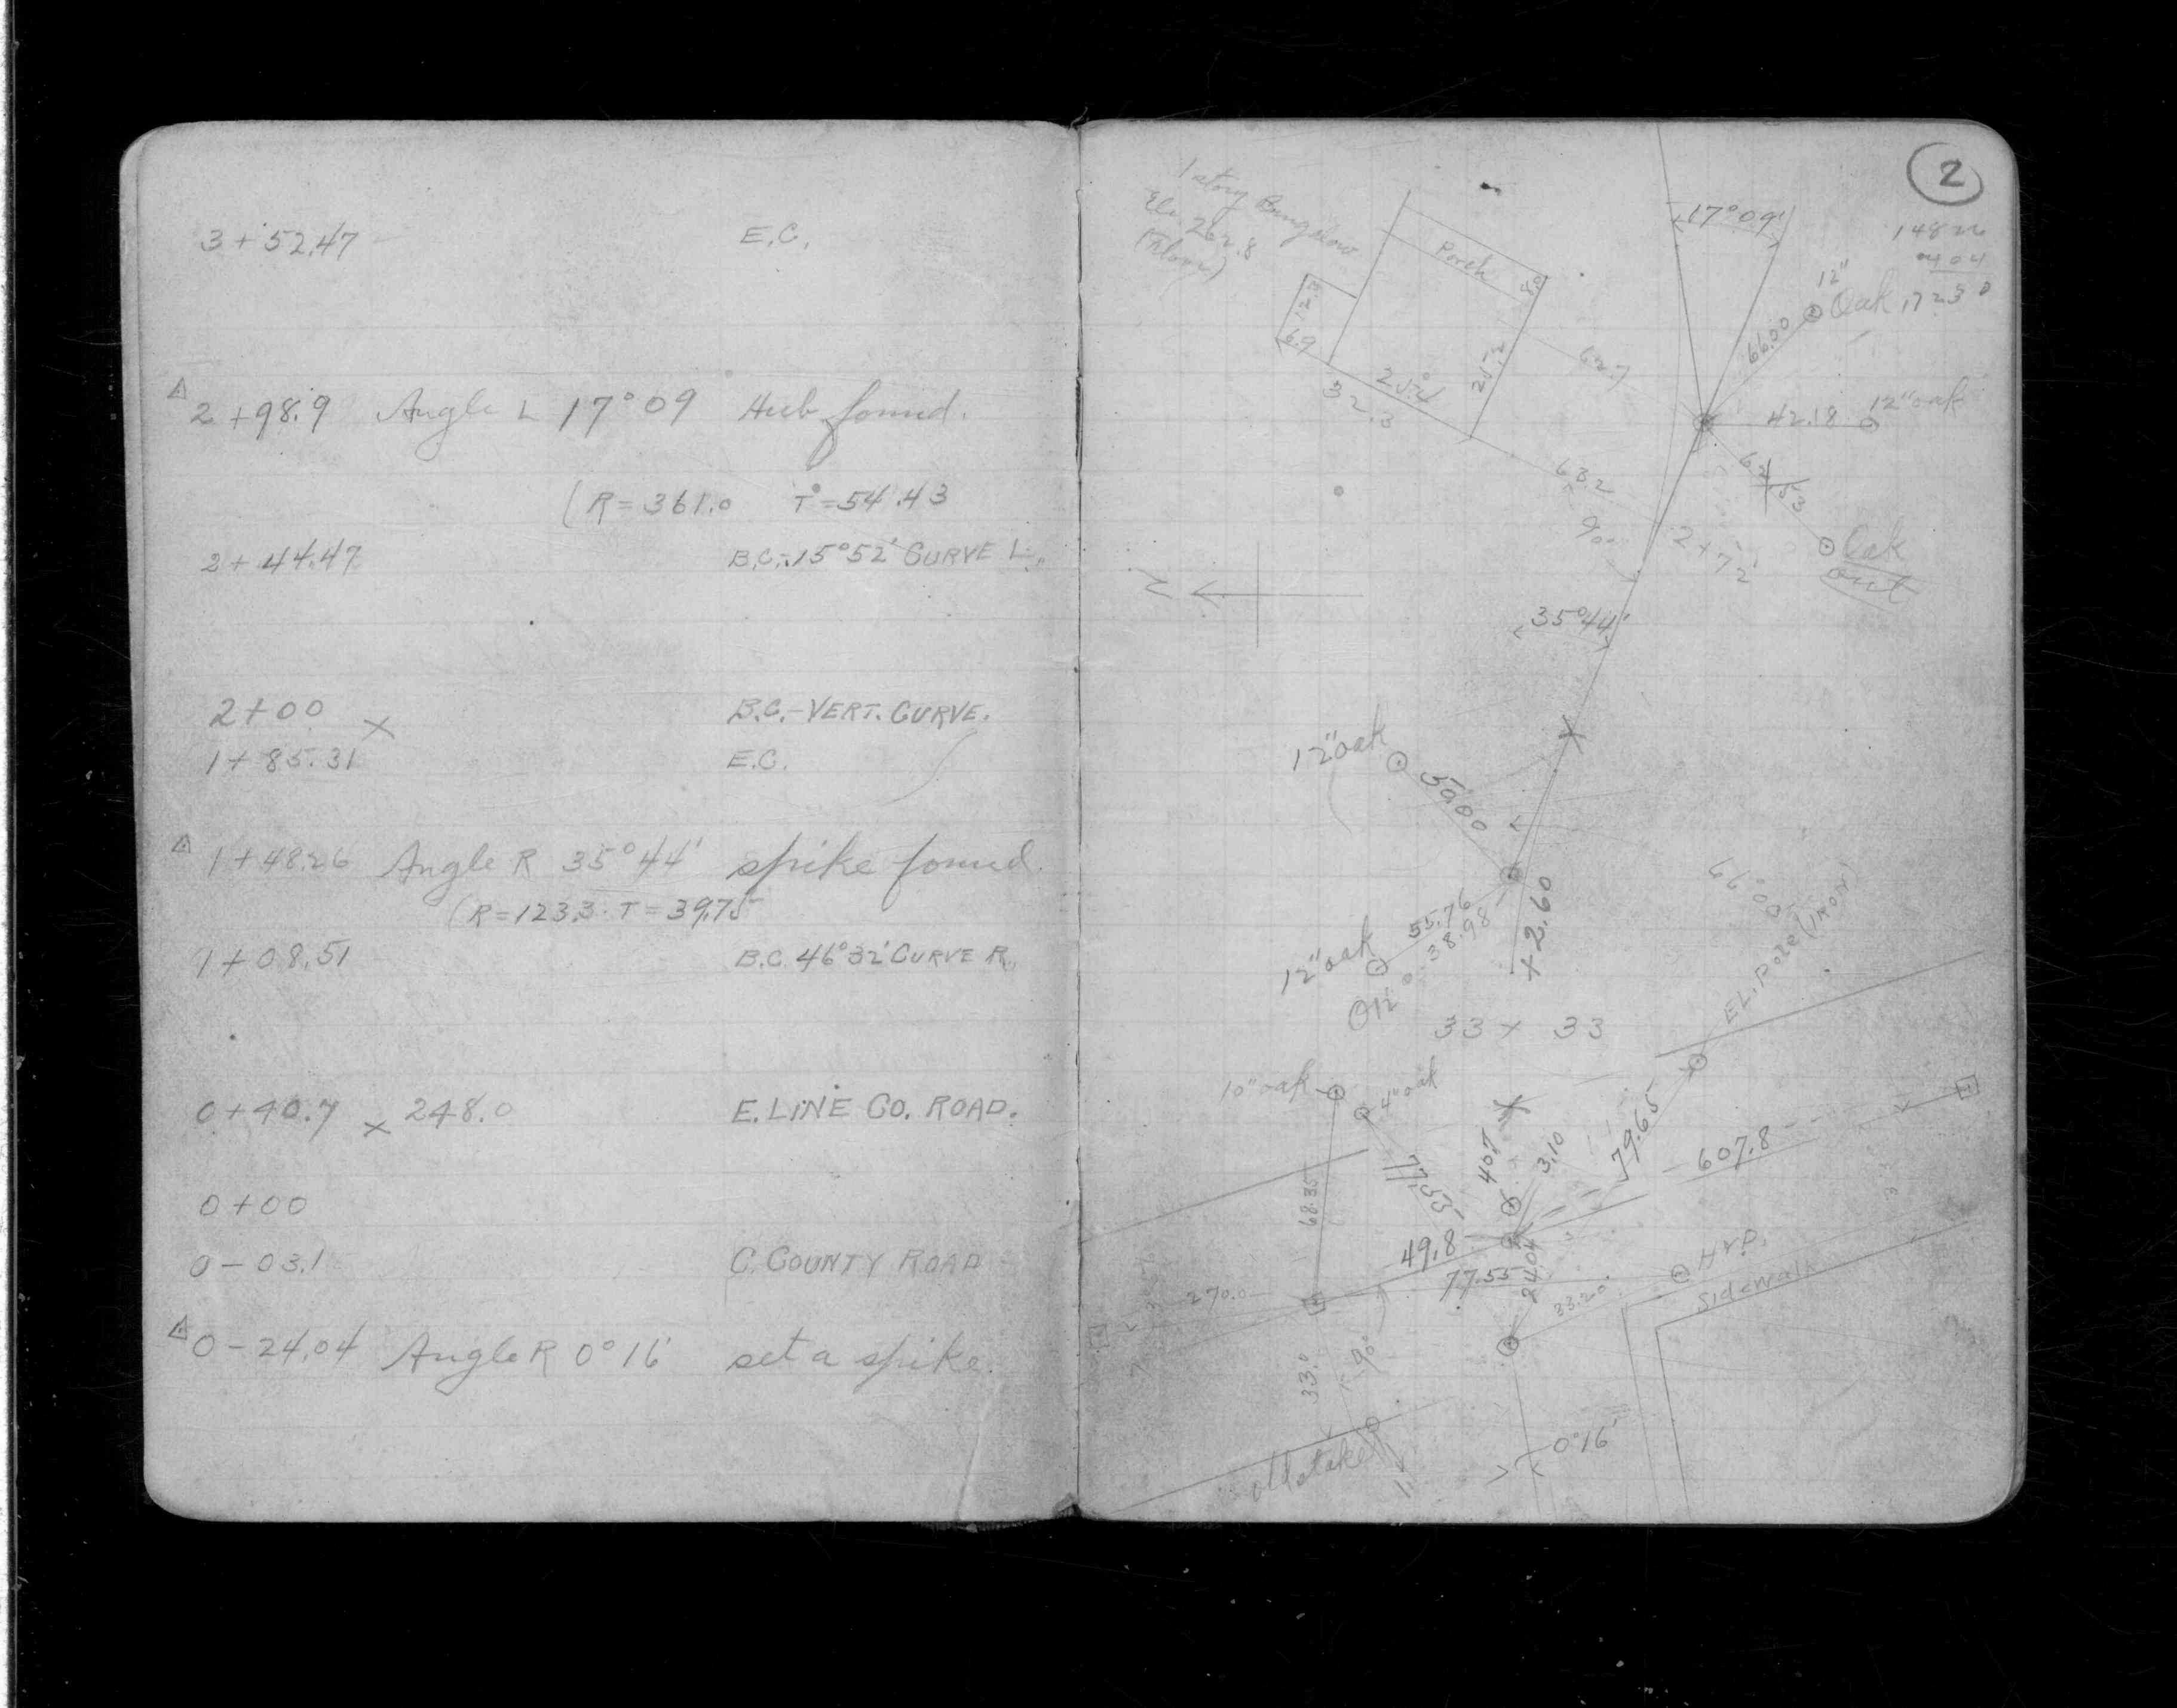 3+52.47 E.C.
2+98.9 Angle L 17°09' Hub found.
(R=361.0 T=54.43
2+44.47 B.C.-15°52' CURVE L.
2+00 x B.C.-VERT. CURVE.
1+85.31 E.C.
1+48.26 Angle R 35°44' spike found.
(R=123.3 T=39.75
1+08.51 B.C. 46°32' CURVE R.
0+40.7 x 248.0 E. LINE CO. ROAD.
0+00
0-03.1 C. COUNTY ROAD
0-24.04 Angle R 0°16' set a spike.
2
1 story Bungalow
Ele. 262.8
(Floor)
Porch
8.0
12.3
6.9
25.2
25.4
32.3
17°09'
148 26
12"
Oak
66.00
62.7
42.18
12" oak
63.2
90°
2+72
Oak
out
N
35°44'
12" oak
50.00
55.76
38.98
12" oak
+2.60
66°00'
EL. Pole (IRON)
33 x 33
10" oak
4" oak
68.85
77.53
40.7
3.10
79.65
607.8
49.8
77.55
24.04
270.0
33.20
Hyd.
Sidewalk
33.0
90°
old stake
1.4
0°16'